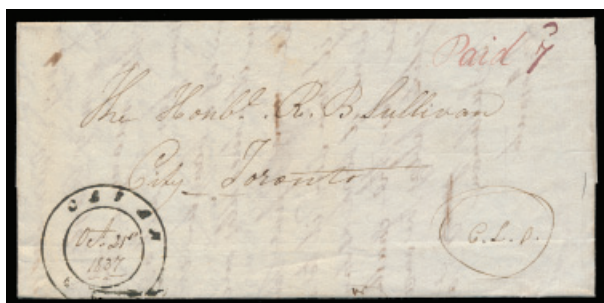 Paid 7
The Honble. R. B. Sullivan
City Toronto
CAVAN
Oct. 21st
1837
C. L. O.